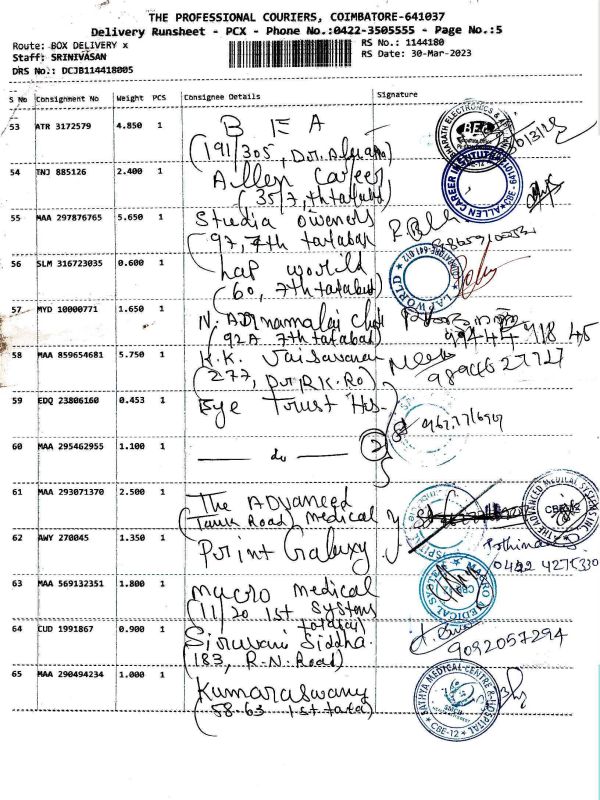 THE PROFESSIONAL COURIERS, COIMBATORE-641037
Delivery Runsheet - PCX - Phone No.:0422-3505555 - Page No.:5
Route: BOX DELIVERY x
RS No.: 1144180
Staff: SRINIVASAN
RS Date: 30-Mar-2023
DRS No.: DCJB114418005
S No Consignment No Weight PCS Consignee Details Signature
53 ATR 3172579 4.850 1 B E A
(191/305,
54 TNJ 885126 2.400 1 Allen Career
(35/7, 7th tatabad)
ALLEN CAREER INSTITUTE
55 MAA 297876765 5.650 1 Studia owners
(97, 7th tatabad
56 SLM 316723035 0.600 1 Lap world
(60, 7th tatabad)
LAP WORLD
COIMBATORE-641 012
57 MYD 10000771 1.650 1 N.
(92A 7th tatabad)
99444 918 45
58 MAA 859654681 5.750 1 K.K.
(277,
98946 27727
59 EDQ 23806160 0.453 1 Eye Trust Hos-
60 MAA 295462955 1.100 1 — do — 2
61 MAA 293071370 2.500 1 The Advanced
(Tank Road) Medical
THE ADVANCED MEDICAL SYSTEM INC.
CBE-12
62 AWY 270045 1.350 1 Print Galaxy
0422 4276330
63 MAA 569132351 1.800 1 Macro Medical
(11/20 1st Systems
tatabad)
MACRO MEDICAL SYSTEMS
64 CUD 1991867 0.900 1 Siruvani Siddha
(183, R.N. Road)
9092057294
65 MAA 290494234 1.000 1 Kumaraswamy
(58-63 1st tata)
SATHYA MEDICAL CENTRE & HOSPITAL
CBE-12